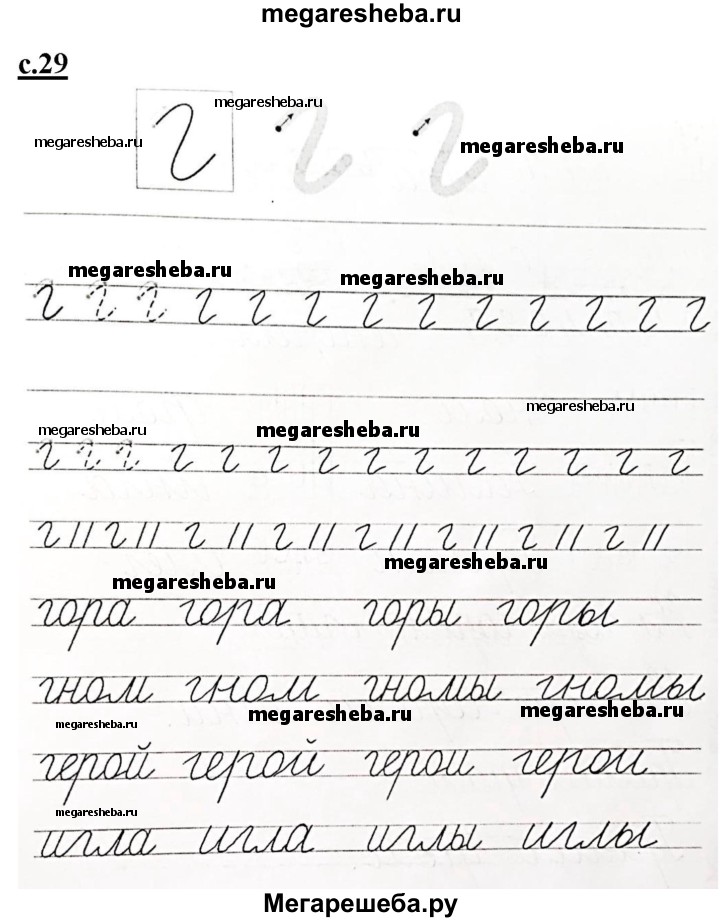 megaresheba.ru
с.29
г megaresheba.ru г г
megaresheba.ru megaresheba.ru
megaresheba.ru megaresheba.ru
г г г г г г г г г г г г г
megaresheba.ru
megaresheba.ru megaresheba.ru
г г г г г г г г г г г г г г
г // г // г // г // г // г // г // г //
megaresheba.ru
megaresheba.ru
гора гора горы горы
гном гном гномы гномы
megaresheba.ru megaresheba.ru megaresheba.ru
герой герой герои герои
megaresheba.ru
игла игла иглы иглы
Мегарешеба.ру